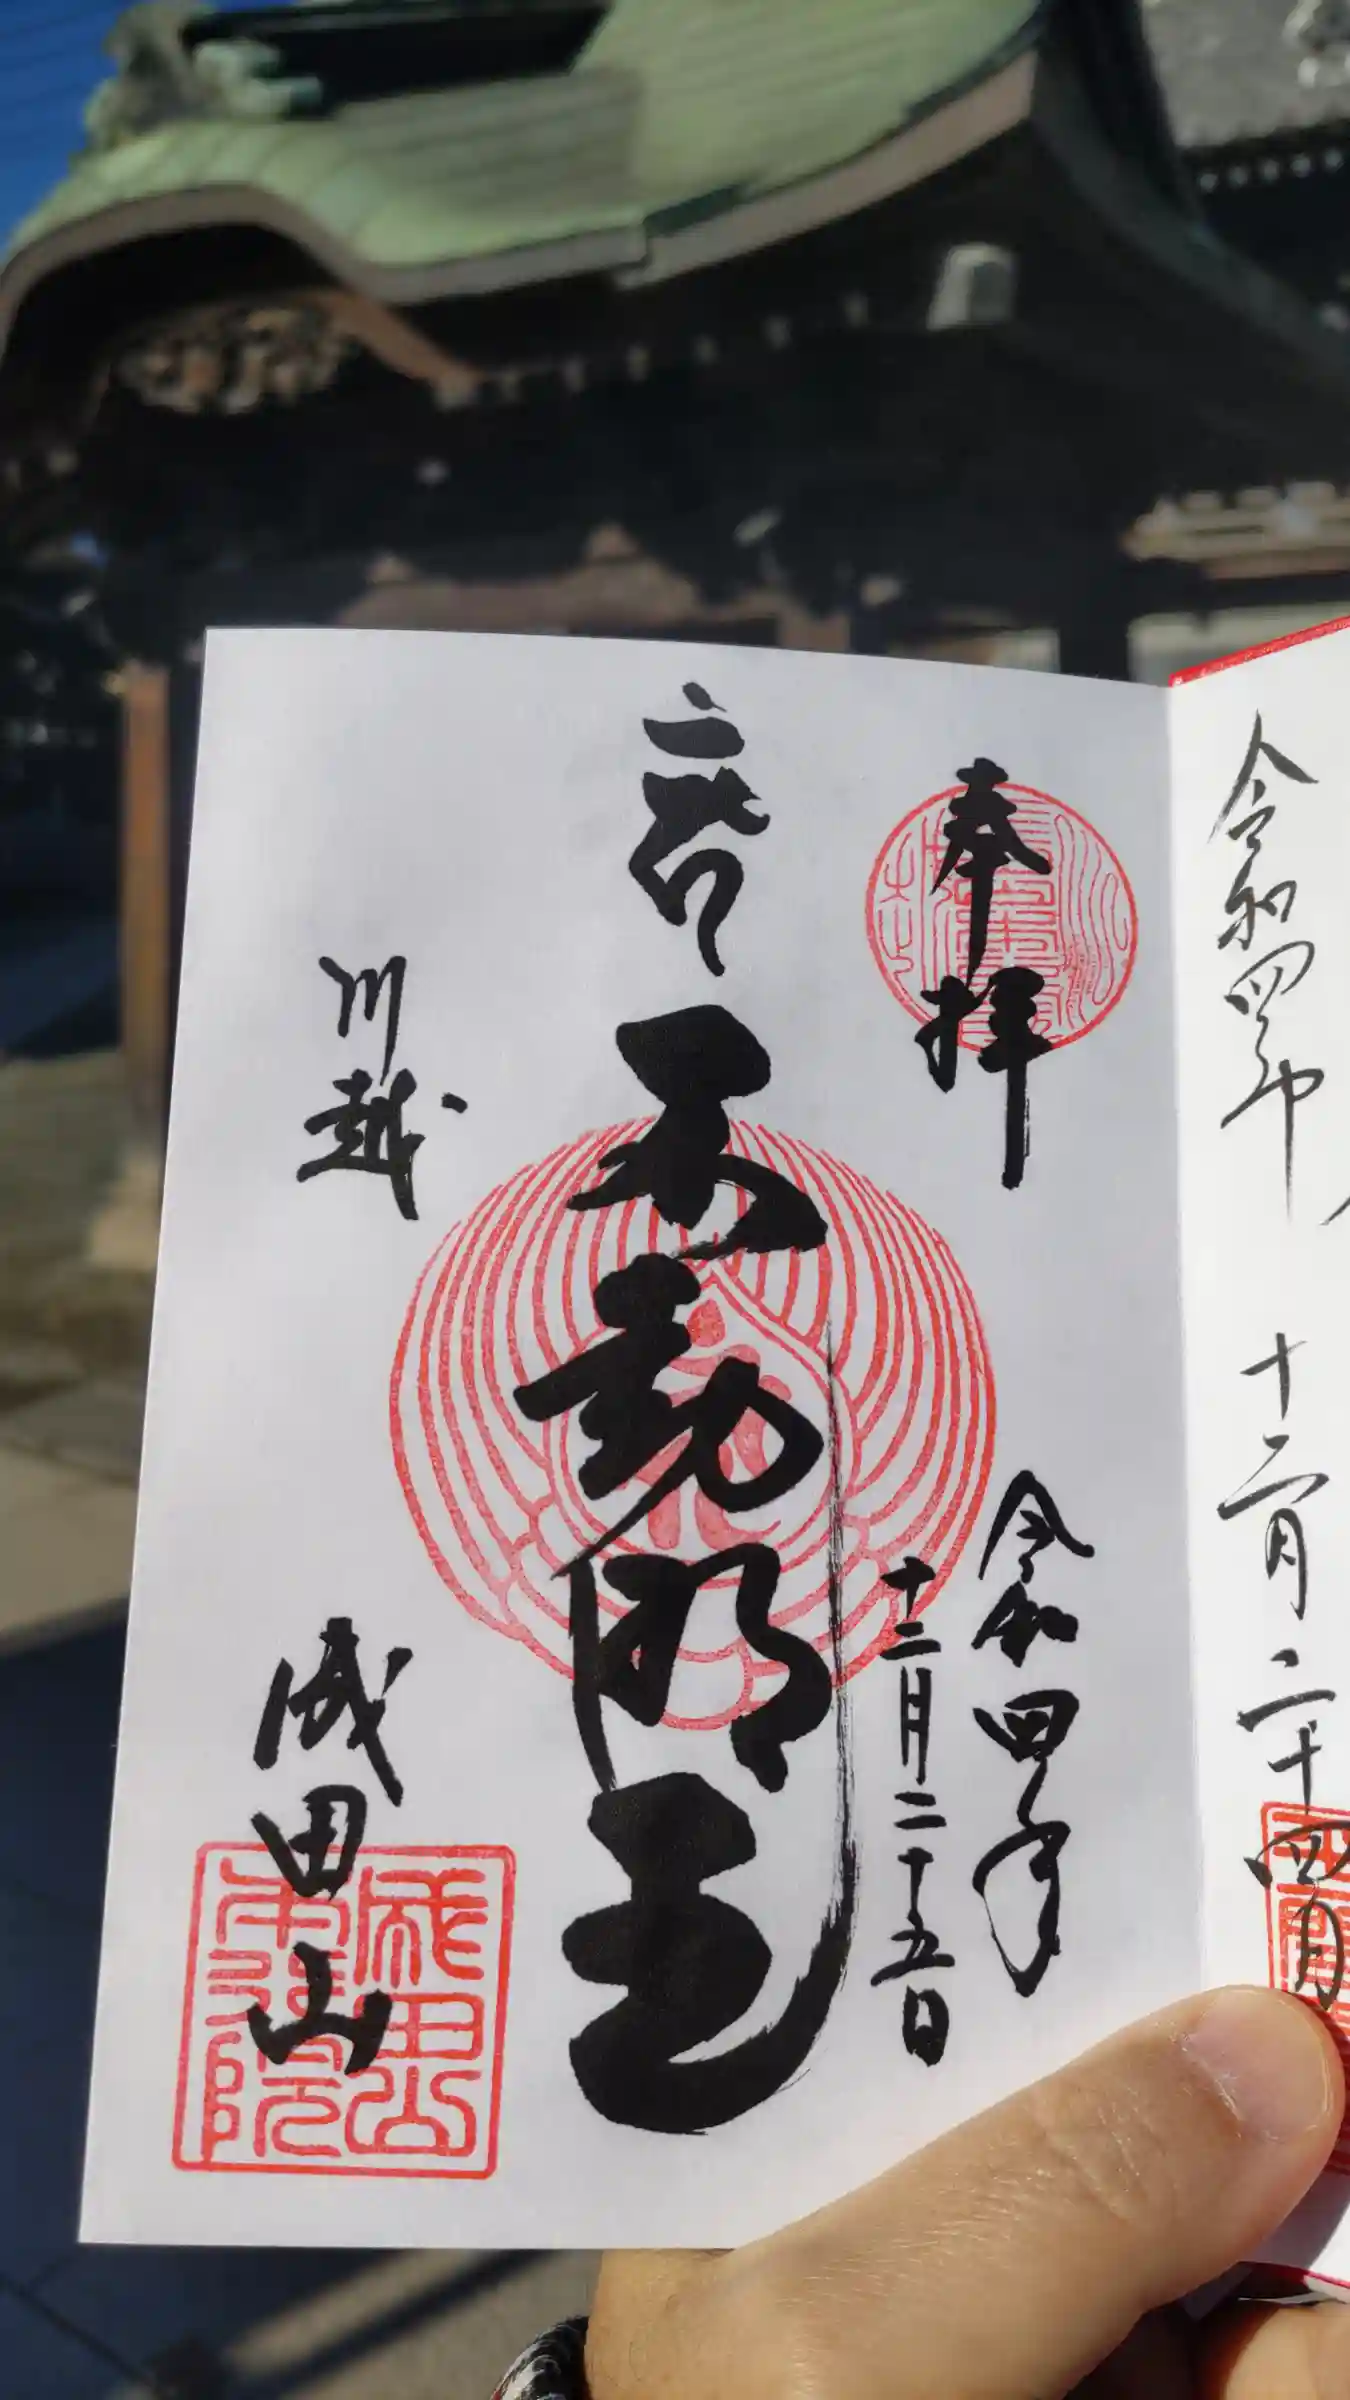 令和四年
十二月二十四日
奉拝
令和四年
十二月二十五日
不動明王
川越
成田山
成田山
本行院